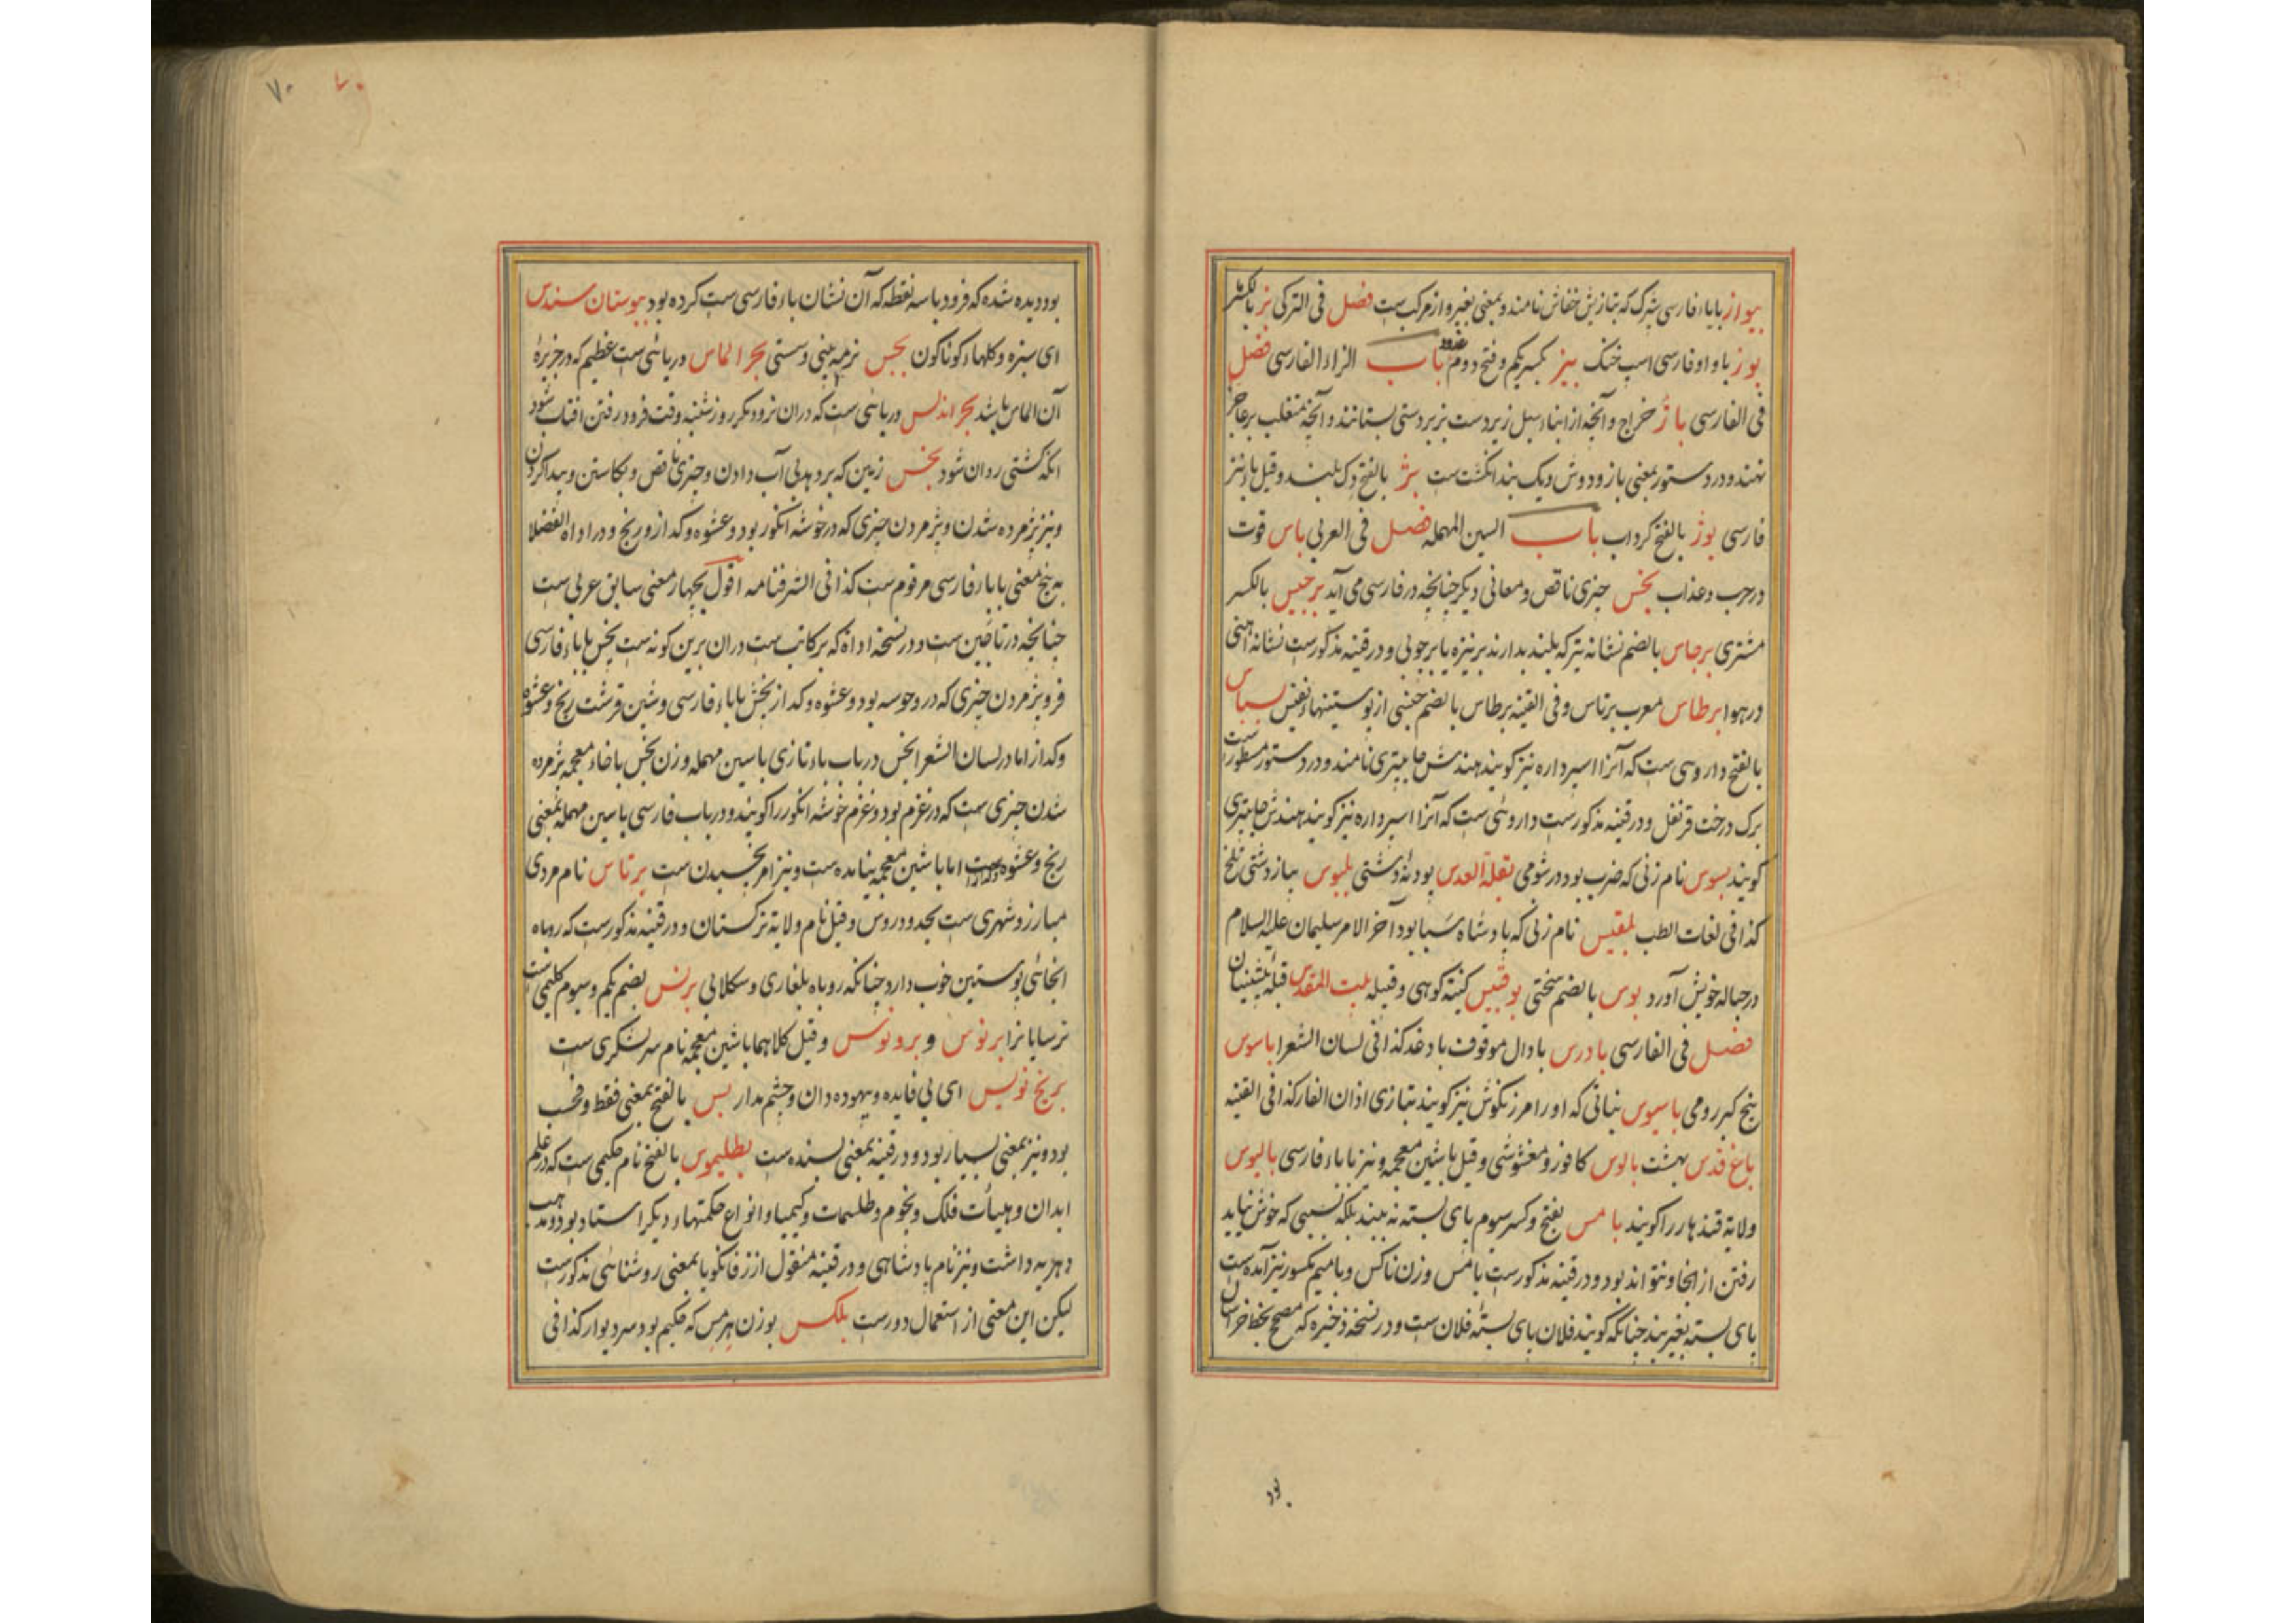 بیواز بابا، فارسی شپرک که بتازیش خفاش نامند و بمعنی بغیر واز مرکبست فصل فی الترکی بز بالکسر
بوز باواو فارسی اسپ خنک بیز بکسر یکم و فتح دوم غدود باب الزاء الفارسی فصل
فی الفارسی باژ خراج و آنچه از ابناء سبیل زیردست بزبردستی بستانند و آنچه متغلب بر عاجز
نهند و در دستور بمعنی باز و دوش و یک بند انکشتست بژ بالفتح دک بلند و قیل باء نیز
فارسی بوژ بالفتح کرداب باب السین المهمله فصل فی العربی باس قوت
در حرب و عذاب بخس چیزی ناقص و معانی دیکر چنانچه در فارسی می آید برجیس بالکسر
مشتری برجاس بالضم نشانه تیر که بلند بدارند بر نیزه یا بر چوبی و در قنیه مذکورست نشانه آهنی
در هوا برطاس معرب برتاس و فی القنیه برطاس بالضم جنسی از پوستینها نفیس بسباس
بالفتح داروی ست که آنرا اسپرداره نیز کویند هندش جابتری نامند و در دستور مسطورست
برک درخت قرنفل و در قنیه مذکورست داروئی ست که آنرا اسپرداره نیز کویند هندش جابتری
کویند بسوس نام زنی که ضرب بود در شومی بقلة العدس پودنهٔ دشتی بلبوس پیاز دشتی تلخ
کذا فی لغات الطب بلقیس نام زنی که پادشاه سبا بود آخر الامر سلیمان علیه السلام
در حباله خویش آورد بوس بالضم سختی بوقبیس کنیته کوهی و قبیله بیت المقدس قبلهٔ پیشینیان
فصل فی الفارسی بادرس بادال موقوف بادغد کذا فی لسان الشعرا باسوس
بنج کبر رومی باسیوس نباتی که او را مرزنکوش نیز کویند بتازی اذان الفار کذا فی القنیه
باغ قدس بهشت بالوس کافور و مغشوشی و قیل باشین معجمه و نیز باباء فارسی بالیوس
ولایة قندهار را کویند بامس بفتح و کسر سیوم پای بسته نه ببند بلکه بسببی که خوش نیاید
رفتن از انجا و نتواند بود و در قنیه مذکورست بامس وزن ناکس و بامیم مکسور نیز آمده ست
پای بسته بغیر بند چنانکه کویند فلان پای بستهٔ فلان ست و در نسخه ذخیره که مصحح بخط خراسان
بود
۷۰ ۷۰
بود دیده شده که فرود با سه نقطه که آن نشان باء فارسی ست کرده بود ببوستان سندس
ای سبزه و کلهاء کوناکون بجس نرمه بینی و سستی بحر الماس دریائی ست عظیم که در جزیرهٔ
آن الماس باشد بحر اندلس دریائی ست که دران نرود مکر روز شنبه وقت فرود رفتن افتاب شود
انکه کشتی روان شود بخس زمین که بر دهد بی آب دادن و چیزی ناقص و بکاستن و پیدا کردن
و نیز پژمرده شدن و پژمردن چیزی که در خوشه انکور بود و عشوه و کداز و رنج و در اداة الفضلا
به پنج معنی باباء فارسی مرقوم ست کذا فی الشرفنامه اقول بچهار معنی سابق عربی ست
چنانچه در تاجین ست و در نسخه اداة که بر کاتب ست دران برین کونه ست پخس باباء فارسی
فروپژمردن چیزی که در وحوسه بود و عشوه و کداز بخش باباء فارسی و شین قرشت رنج و عشوه
و کداز اما در لسان الشعرا بخس در باب باء تازی باسین مهمله وزن بخس باخاء معجمه پژمرده
شدن چیزی ست که در غژم بود و غژم خوشه انکور را کویند و در باب فارسی باسین مهمله بمعنی
رنج و عشوه و کداز ست اما باشین معجمه نیامده ست و نیز امر بخسیدن ست برتاس نام مردی
مبارز و شهری ست بحدود روس و قیل نام ولایة ترکستان و در قنیه مذکورست که روباه
انجائی پوستین خوب دارد چنانکه روباه بلغاری و سکلابی برنس بضم یکم و سیوم کلیمی ست
ترسایانرا برنوس و برونوس و قیل کلاهما باشین معجمه نام سر لشکری ست
بریخ نویس ای بی فایده و بیهوده دان و چشم مدار بس بالفتح بمعنی فقط و فحسب
بود و نیز بمعنی بسیار بود و در قنیه بمعنی بسنده ست بطلیموس بالفتح نام حکیمی ست که در علم
ابدان و هیأت فلک و نجوم و طلسمات و کیمیا و انواع حکمتهاء دیکر استاد بود و مذهب
دهریه داشت و نیز نام پادشاهی و در قنیه منقول از زفانکویا بمعنی روشنائی مذکورست
لیکن این معنی از استعمال دورست بلکس بوزن هرمس که حکیم بود سر دیوار کذا فی